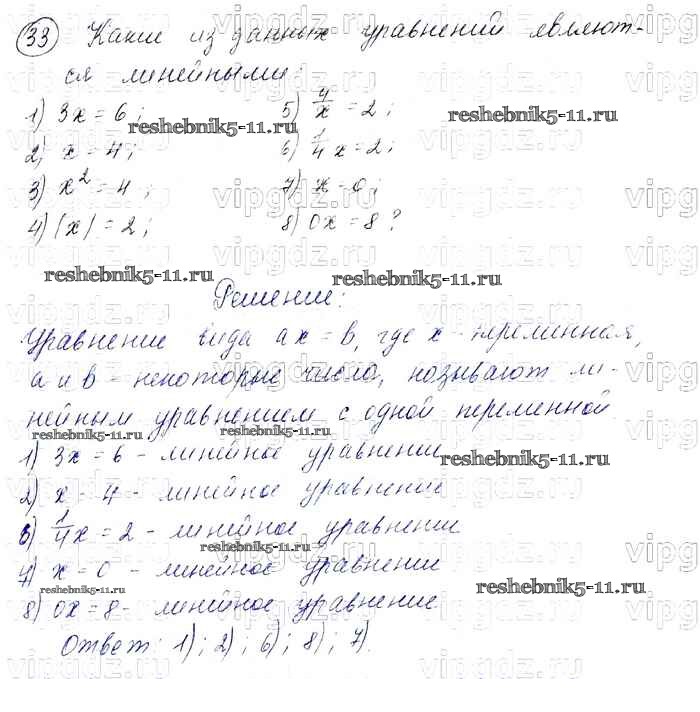 33 Какие из данных уравнений являют-
ся линейными:
1) 3x = 6;
2) x = 4;
3) x² = 4;
4) |x| = 2;
5) 4/x = 2;
6) 1/4 x = 2;
7) x = 0;
8) 0x = 8?
reshebnik5-11.ru
Решение:
Уравнение вида ax = b, где x - переменная,
a и b - некоторые числа, называют ли-
нейным уравнением с одной переменной
1) 3x = 6 - линейное уравнение
2) x = 4 - линейное уравнение
6) 1/4 x = 2 - линейное уравнение
7) x = 0 - линейное уравнение
8) 0x = 8 - линейное уравнение
Ответ: 1); 2); 6); 8); 7).
vipgdz.ru